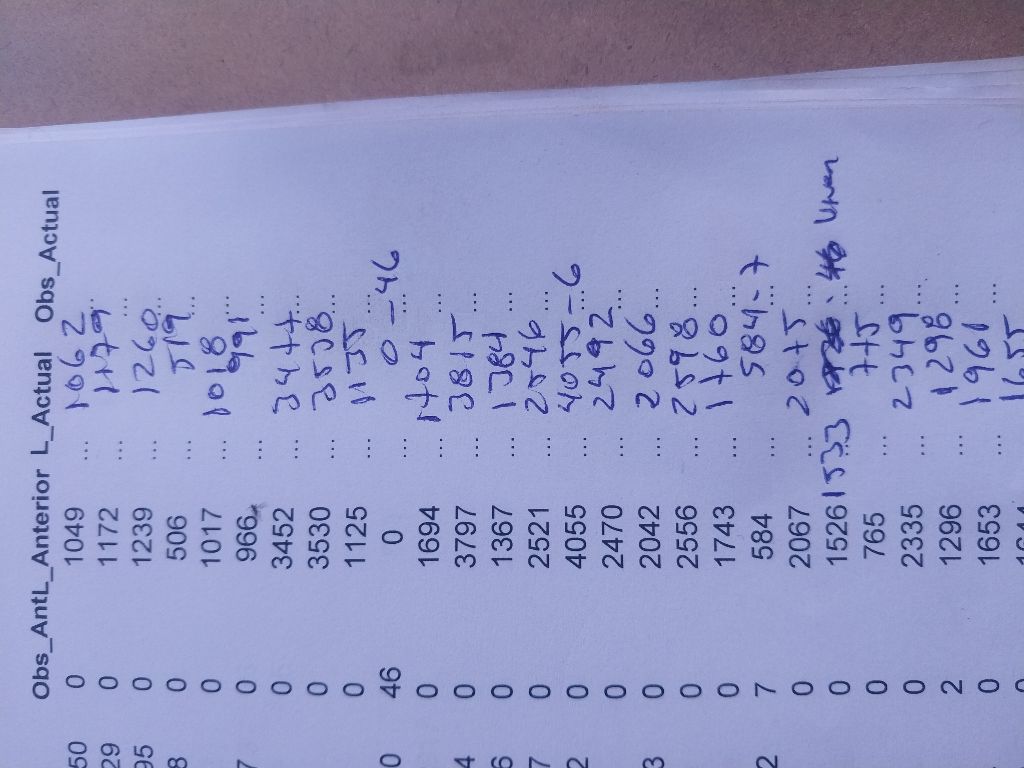 Obs_AntL_Anterior L_Actual Obs_Actual
50 0 1049 ... 1062 ...
29 0 1172 ... 1179 ...
95 0 1239 ... 1260 ...
8 0 506 ... 519 ...
0 1017 ... 1018 ...
7 0 966 ... 991 ...
0 3452 ... 3477 ...
0 3530 ... 3538 ...
0 1125 ... 1135 ...
0 46 0 ... 0 - 46
0 1694 ... 1704 ...
4 0 3797 ... 3815 ...
6 0 1367 ... 1384 ...
7 0 2521 ... 2546 ...
2 0 4055 ... 4055 - 6
0 2470 ... 2492 ...
3 0 2042 ... 2066 ...
0 2556 ... 2598 ...
0 1743 ... 1760 ...
2 7 584 ... 584 - 7
0 2067 ... 2075 ...
0 1526 1533
0 765 ... 775 ...
0 2335 ... 2349 ...
2 1296 ... 1298 ...
0 1653 ... 1961 ...
0 1655